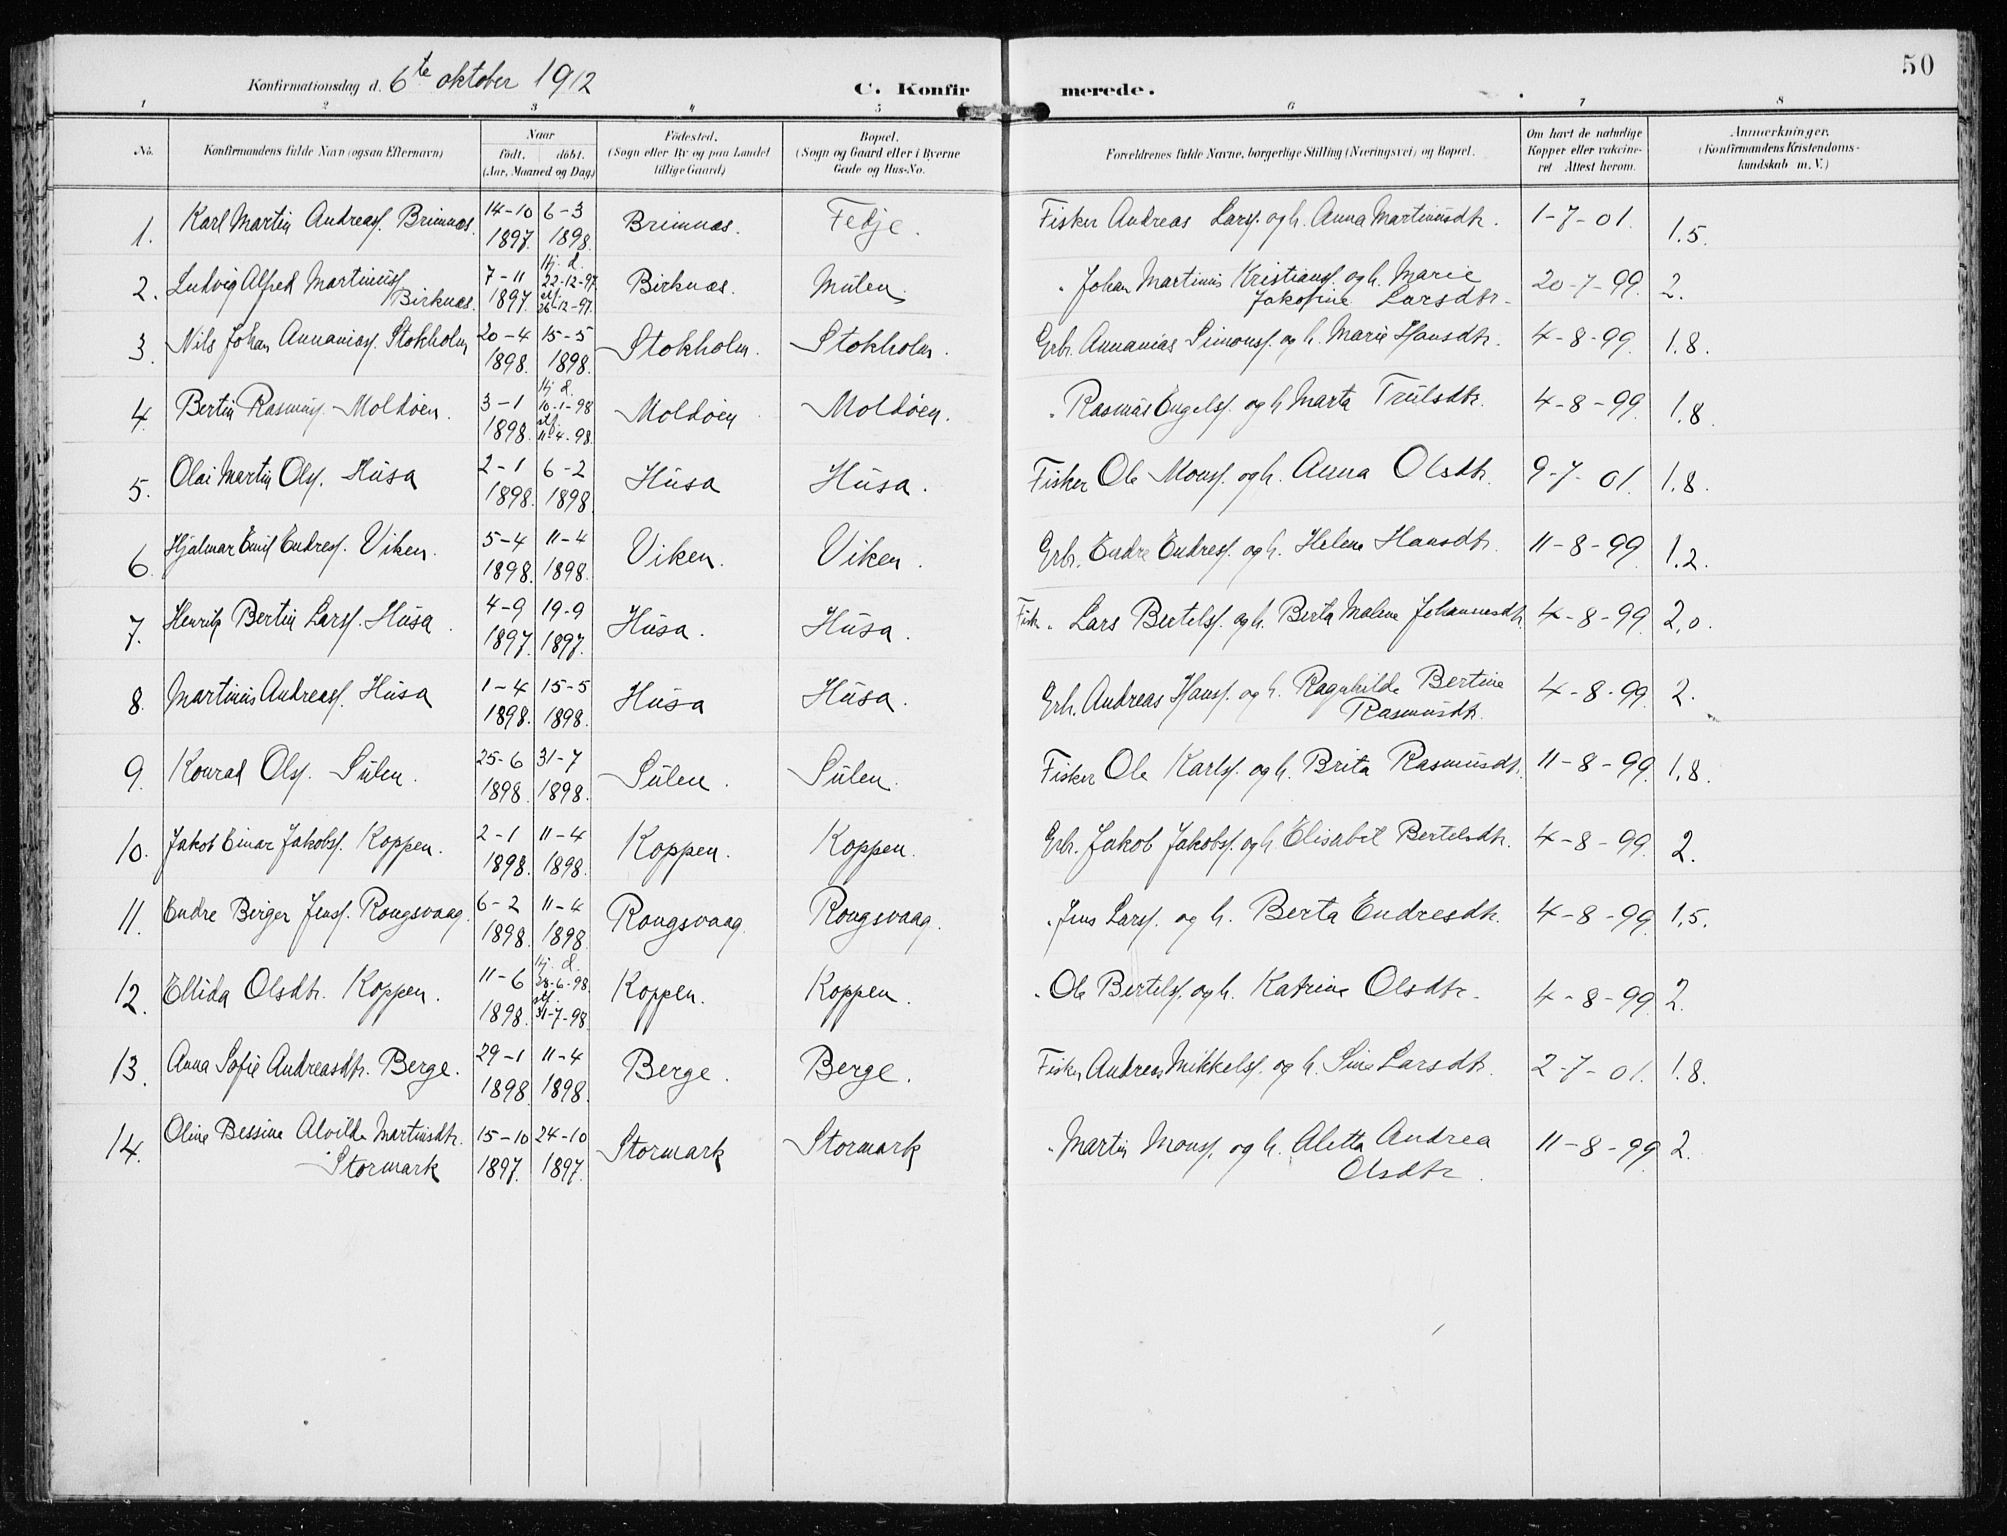 50
Konfirmationsdag d. 6te oktober 1912
C. Konfirmerede.
1 2 3 4 5 6 7 8
No.
Konfirmandens fulde Navn (ogsaa Efternavn)
Naar
födt. döbt.
(Aar, Maaned og Dag)
Födested.
(Sogn eller By og paa Landet
tillige Gaard)
Bopæl.
(Sogn og Gaard eller i Byerne
Gade og Hus-No.
Forældrenes fulde Navne, borgerlige Stilling (Næringsvei) og Bopæl.
Om havt de naturlige
Kopper eller vakcine-
ret Attest herom.
Anmerkninger.
(Konfirmandens Kristendoms-
kundskab m. V.)
1. Karl Martin Andreasf. Brimnæs. 14-10 6-3 Brimnæs. Fedje. Fisker Andreas Larsf. og h. Anna Martinusdtr. 1-7-01. 1.5.
1897. 1898.
2. Ludvig Alfred Martinusf. Birknæs. 7-11 1897. Hj. d. 22-12-97. stf. 26-12-97. Birknæs. Mulen. " Johan Martinus Kristiansf. og h. Marie 20-7-99. 2.
Jakobine Larsdtr.
3. Nils Johan Annaniasf. Stokholm 20-4 15-5 Stokholm. Stokholm. Grbr. Annanias Simonsf. og h. Marie Hansdtr. 4-8-99. 1.8.
1898. 1898.
4. Bertin Rasmusf. Moldøen. 3-1 1898. Hj. d. 10-1-98 stf. 11-4-98. Moldøen. Moldøen. " Rasmus Engelsf. og h. Marta Trulsdtr. 4-8-99. 1.8.
5. Olai Martin Olsf. Husa 2-1 6-2 Husa Husa. Fisker Ole Monsf. og h. Anna Olsdtr. 9-7-01. 1.8.
1898. 1898.
6. Hjalmar Emil Endresf. Viken. 5-4 11-4 Viken. Viken. Grbr. Endre Endresf. og h. Helene Hansdtr. 11-8-99. 1.2.
1898. 1898.
7. Henrik Bertin Larsf. Husa. 4-9 19-9 Husa. Husa. Fisk. " Lars Bertelsf. og h. Berta Malene Johannesdtr. 4-8-99. 2,0.
1897. 1897.
8. Martinus Andreasf. Husa 1-4 15-5 Husa Husa. Grb. Andreas Hansf. og h. Ragnhilde Bertine 4-8-99. 2.
1898. 1898. Rasmusdtr.
9. Konrad Olsf. Sulen. 25-6 31-7 Sulen. Sulen. Fisker Ole Karlsf. og h. Brita Rasmusdtr. 11-8-99. 1.8.
1898. 1898.
10. Jakob Einar Jakobsf. Koppen. 2-1 11-4 Koppen. Koppen. Grb. Jakob Jakobsf. og h. Elisabet Bertelsdtr. 4-8-99. 2.
1898. 1898.
11. Endre Berger Jensf. Rongsvaag. 6-2 11-4 Rongsvaag. Rongsvaag. " Jens Larsf. og h. Berta Endresdtr. 4-8-99. 1.5.
1898. 1898.
12. Ellida Olsdtr. Koppen. 11-6 1898. Hj. d. 28-6-98. stf. 31-7-98. Koppen. Koppen. " Ole Bertelsf. og h. Katrine Olsdtr. 4-8-99. 2.
13. Anna Sofie Andreasdtr. Berge. 29-1 11-4 Berge. Berge. Fisker Andreas Mikkelsf. og h. Sine Larsdtr. 2-7-01. 1.8.
1898. 1898.
14. Oline Bessine Alvilde Martinsdtr. 15-10 24-10 Stormark Stormark " Martin Monsf. og h. Aletta Andrea 11-8-99 2.
Stormark 1897. 1897. Olsdtr.